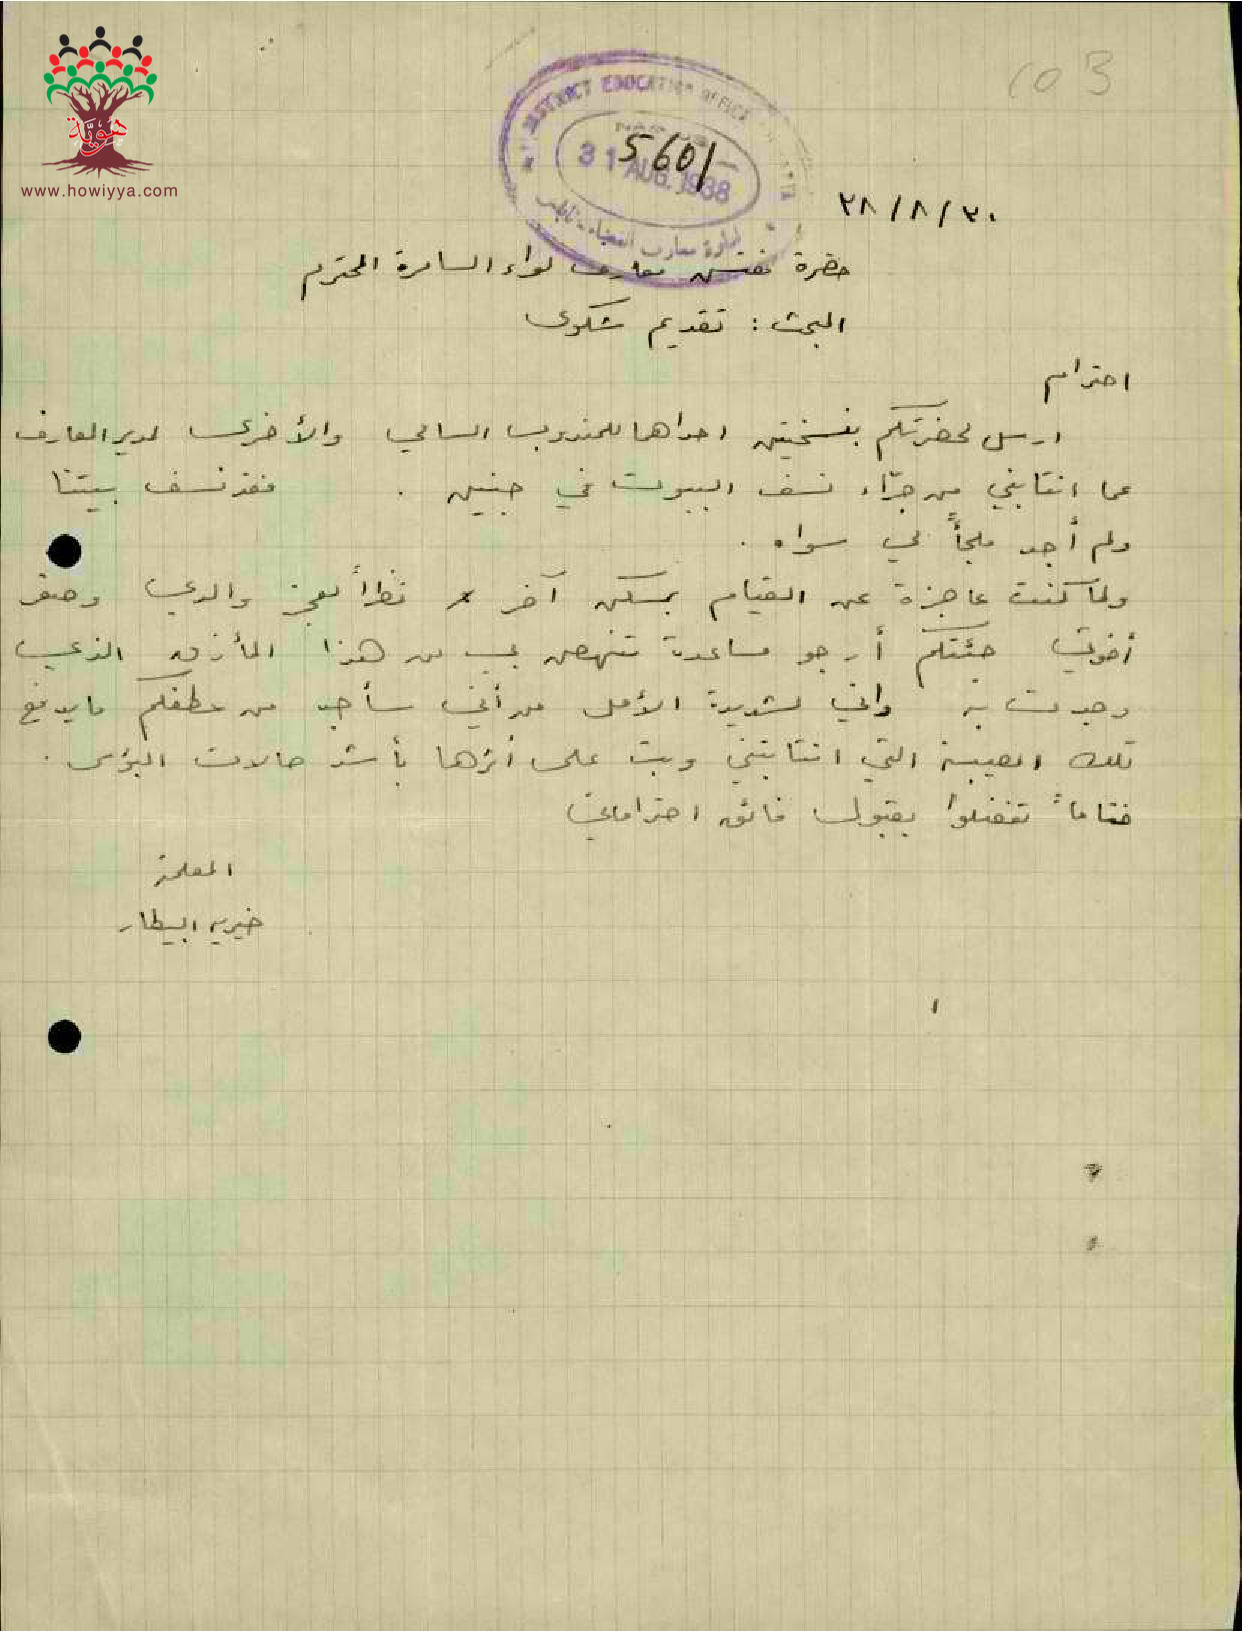 هويّة
www.howiyya.com
103
DISTRICT EDUCATION OFFICE
31 AUG. 1938
5601
ادارة معارف القضاء - نابلس
٣٨/٨/٣٠
حضرة مفتش معارف لواء السامرة المحترم
البحث : تقديم شكوى
احترام
ارسل لحضرتكم بنسختين احداها للمندوب السامي والأخرى لمدير المعارف
عما انتابني من جرّاء نسف البيوت في جنين . فقد نسف بيتنا
ولم أجد ملجأً لي سواه .
ولما كنت عاجزة عن القيام بمسكن آخر نظراً لعجز والدي وصغر
أخوتي جئتكم أرجو مساعدة تنهض بي من هذا المأزق الذي
وجدت به واني لشديدة الأمل من أني سأجد من عطفكم ما يدفع
تلك المصيبة التي انتابتني وبت على أثرها بأشد حالات البؤس .
ختاماً تفضلوا بقبول فائق احترامي
المعلمة
خيريه البيطار